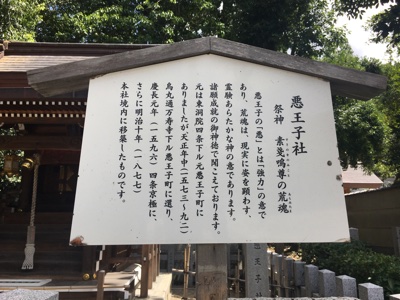 悪王子社
祭神 素戔嗚尊の荒魂
悪王子の「悪」とは「強力」の意で
あり、荒魂は、現実に姿を顕わす、
霊験あらたかな神の意であります。
諸願成就の御神徳で聞こえております。
元は東洞院四条下ル元悪王子町に
ありましたが天正年中(一五七三~九二)
烏丸通万寿寺下ル悪王子町に還り、
慶長元年(一五九六)四条京極に、
さらに明治十年(一八七七)
本社境内に移築したものです。